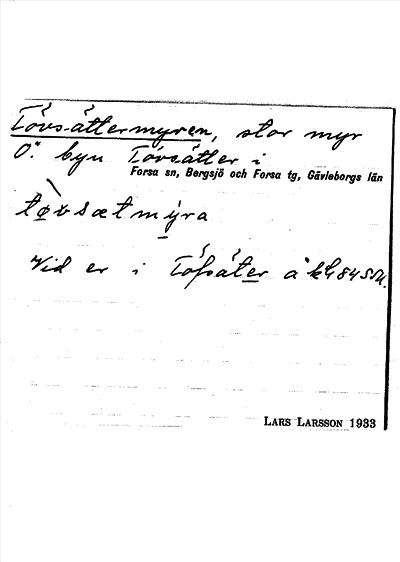 Tövsättermyren, stor myr
Ö. byn Tövsätter i
Forsa sn, Bergsjö och Forsa tg, Gävleborgs län
tøvsætmýra
Vid er i Töfsäter å kbl 84 SV.
LARS LARSSON 1933